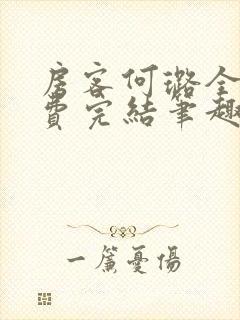 房客何璐全
费完结笔趣
一篇憂傷